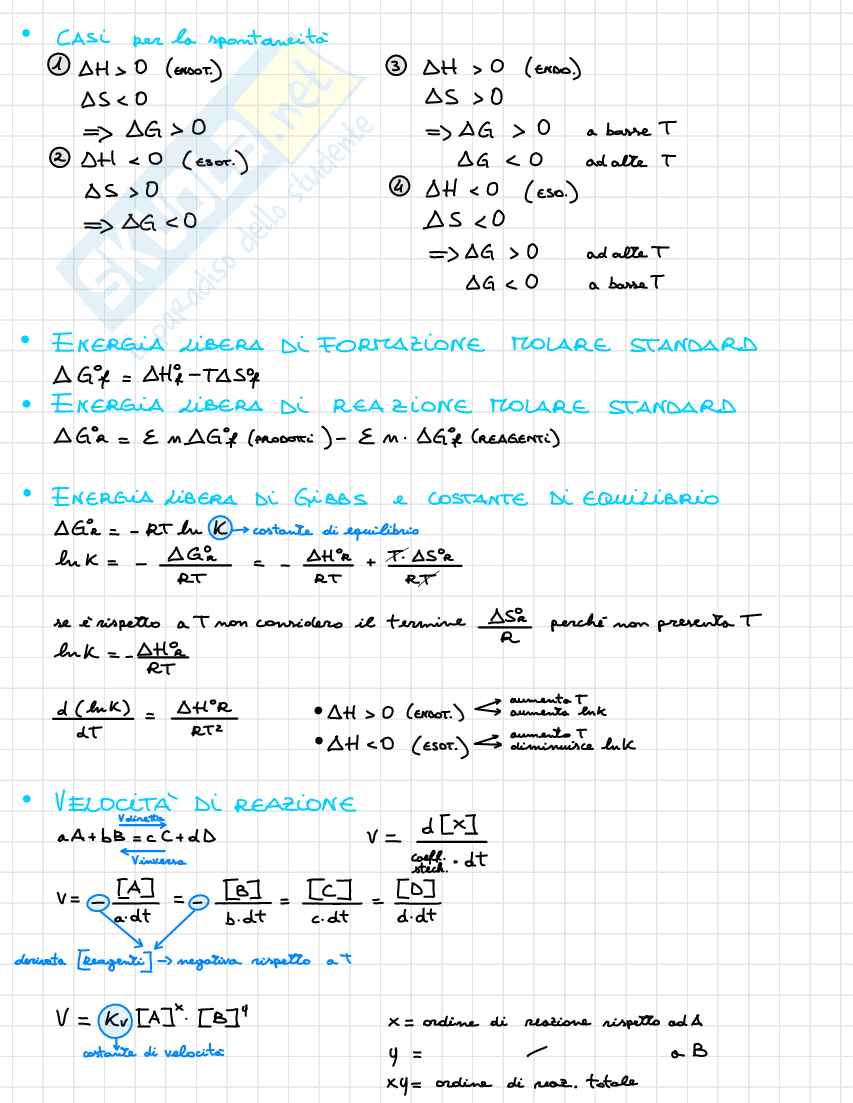 • CASI per la spontaneità
① ΔH > 0 (ENDOT.)
ΔS < 0
⇒ ΔG > 0
② ΔH < 0 (ESOT.)
ΔS > 0
⇒ ΔG < 0
③ ΔH > 0 (ENDO.)
ΔS > 0
⇒ ΔG > 0 a basse T
ΔG < 0 ad alte T
④ ΔH < 0 (ESO.)
ΔS < 0
⇒ ΔG > 0 ad alte T
ΔG < 0 a basse T
SKUOLA.net
il paradiso dello studente
• ENERGIA LIBERA DI FORMAZIONE MOLARE STANDARD
ΔG°f = ΔH°f - TΔS°f
• ENERGIA LIBERA DI REAZIONE MOLARE STANDARD
ΔG°R = Σ n ΔG°f (PRODOTTI) - Σ n · ΔG°f (REAGENTI)
• ENERGIA LIBERA DI GIBBS e COSTANTE DI EQUILIBRIO
ΔG°R = - RT ln K → costante di equilibrio
ln K = - ΔG°R / RT = - ΔH°R / RT + T · ΔS°R / RT
se è rispetto a T non considero il termine ΔS°R / R perché non presenta T
ln K = - ΔH°R / RT
d (ln K) / dT = ΔH°R / RT²
• ΔH > 0 (ENDOT.) aumenta T
aumenta ln K
• ΔH < 0 (ESOT.) aumenta T
diminuisce ln K
• VELOCITÀ DI REAZIONE
V diretta
aA + bB = cC + dD
V inversa
V = d [X] / coeff. stech. · dt
V = - [A] / a·dt = - [B] / b·dt = [C] / c·dt = [D] / d·dt
derivata [Reagenti] → negativa rispetto a t
V = Kv [A]^x · [B]^y
costante di velocità
x = ordine di reazione rispetto ad A
y = — a B
xy = ordine di reaz. totale